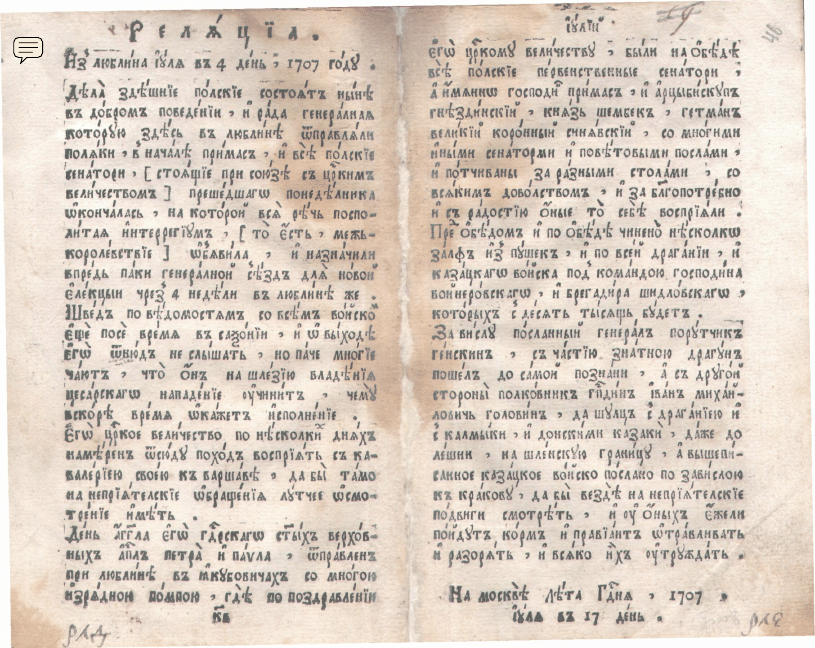 Релѧ́цїѧ.
И҆з̾ люблина і҆ꙋлѧ въ 4 день, 1707 го́дꙋ.
Дѣла̀ здѣ́шнїе по́лскїе состоѧ́тъ ны́нѣ
въ до́бромъ поведе́нїи, и҆ ра́да генера́лнаѧ
кото́рꙋю здѣ́сь въ люблинѣ ѿправлѧ́ли
полѧ́ки, в̾ нача́лѣ примасъ, и҆ всѣ̀ по́лскїе
сена́тори, [ стоѧ́щїе при сою́зѣ съ цр҃кимъ
вели́чествомъ ] преше́дшагѡ понедѣ́лника
ѡ҆конча́лась, на кото́рой всѧ̀ рѣ́чь поспо-
ли́таѧ и҆нтеррегїꙋмъ, [ то̀ є҆́сть, межъ-
королевствїе ] ѡ҆б̾ѧви́ла, и҆ назна́чили
впре́дь па́ки генера́лной с̾ѣ́здъ длѧ̀ но́вой
є҆ле́кцыи чрез̾ 4 недѣ́ли въ люблинѣ же.
Шве́дъ по вѣ́домостѧмъ со всѣ́мъ во́йско
є҆щѐ посѐ вре́мѧ въ сазо́нїи, и҆ ѡ҆ вы́ходѣ
є҆гѡ̀ ѿню́дъ не слы́шать, но па́че мно́гїе
ча́ютъ, что̀ ѻ҆́нъ на шле́зїю владѣ́нїѧ
цеса́рскагѡ нападе́нїе ᲂу҆чини́тъ, чемꙋ̀
вско́рѣ вре́мѧ ѡ҆ка́жетъ и҆сполне́нїе.
Є҆гѡ̀ цр҃кое вели́чество по нѣ́сколки дня́хъ
намѣ́ренъ ѿсю́дꙋ похо́дъ воспрїѧ́ть съ ка-
вале́рїею свое́ю къ варша́вѣ, да бы̀ та́мо
на непрїѧ́телскїе ѡ҆браще́нїѧ лꙋ́тчее ѡ҆смо-
тре́нїе и҆мѣ́ть.
День а҆́гг҃ла є҆гѡ̀ гдⷭ҇рскагѡ ст҃ы́хъ верхо́в-
ныхъ а҆пⷭ҇лъ петра̀ и҆ па́ѵла, ѿпра́вленъ
при люблинѣ въ ꙗ҆кꙋбовичахъ со мно́гою
и҆зрѧ́дною по́мпою, гдѣ̀ по поздравле́нїи
к҃в
і҆ꙋлїй
є҆гѡ̀ цр҃комꙋ вели́чествꙋ, были на ѻ҆бѣ́дѣ
всѣ̀ по́лскїе пе́рвенственные сена́тори,
а҆ и҆́мѧннѡ господи́нъ примасъ, и҆ а҆рцыбискꙋпъ
гнѣ́здинскїй, кнѧ́зь шембекъ, ге́тманъ
вели́кїй коро́нный синѧвскїй, со мно́гими
и҆ны́ми сена́торми и҆ повѣ́товыми посла́ми,
и҆ по́тчиваны за ра́зными стола́ми, со
всѧ́кимъ дово́лствомъ, и҆ за бл҃гопотре́бно
и҆ съ ра́достїю ѻ҆́ные то̀ себѣ̀ воспрїѧ́ли.
Пре́д̾ ѻ҆бѣ́домъ и҆ по ѻ҆бѣ́дѣ чи́нено нѣ́сколкѡ
за́лфъ и҆з̾ пꙋ́шекъ, и҆ по все́й драга́нїи, и҆
каза́цкагѡ во́йска под̾ кома́ндою господи́на
войнеровскагѡ, и҆ брегади́ра шидловскагѡ,
кото́рыхъ с̾ де́сѧть ты́сѧщь бꙋ́детъ.
За ви́слꙋ по́сланный генера́лъ порꙋ́тчикъ
генскинъ, съ ча́стїю зна́тною драгꙋ́нъ
поше́лъ до са́мой позна́ни, а҆ съ дрꙋго́й
стороны̀ полко́вникъ гпⷭ҇динъ і҆ва́нъ миха́й-
ловичь голови́нъ, да шꙋлцъ с̾ драга́нїею и҆
с̾ калмыки, и҆ до́нскими казакѝ, да́же до
лешни, на шленскꙋю грани́цꙋ, а҆ вышепи-
санное каза́цкое во́йско по́слано по зави́слою
къ кра́ковꙋ, да бы̀ вездѣ̀ на непрїѧ́телскїе
по́двиги смотрѣ́ть, и҆ ᲂу҆ ѻ҆́ныхъ є҆́жели
по́йдꙋтъ, ко́рмъ и҆ правїа́нтъ ѡ҆травли́вать
и҆ разорѧ́ть, и҆ всѧ́ко и҆́хъ ᲂу҆трꙋжда́ть.
На москвѣ̀ лѣ́та гдⷭ҇нѧ, 1707,
і҆ꙋлѧ въ 17 день.